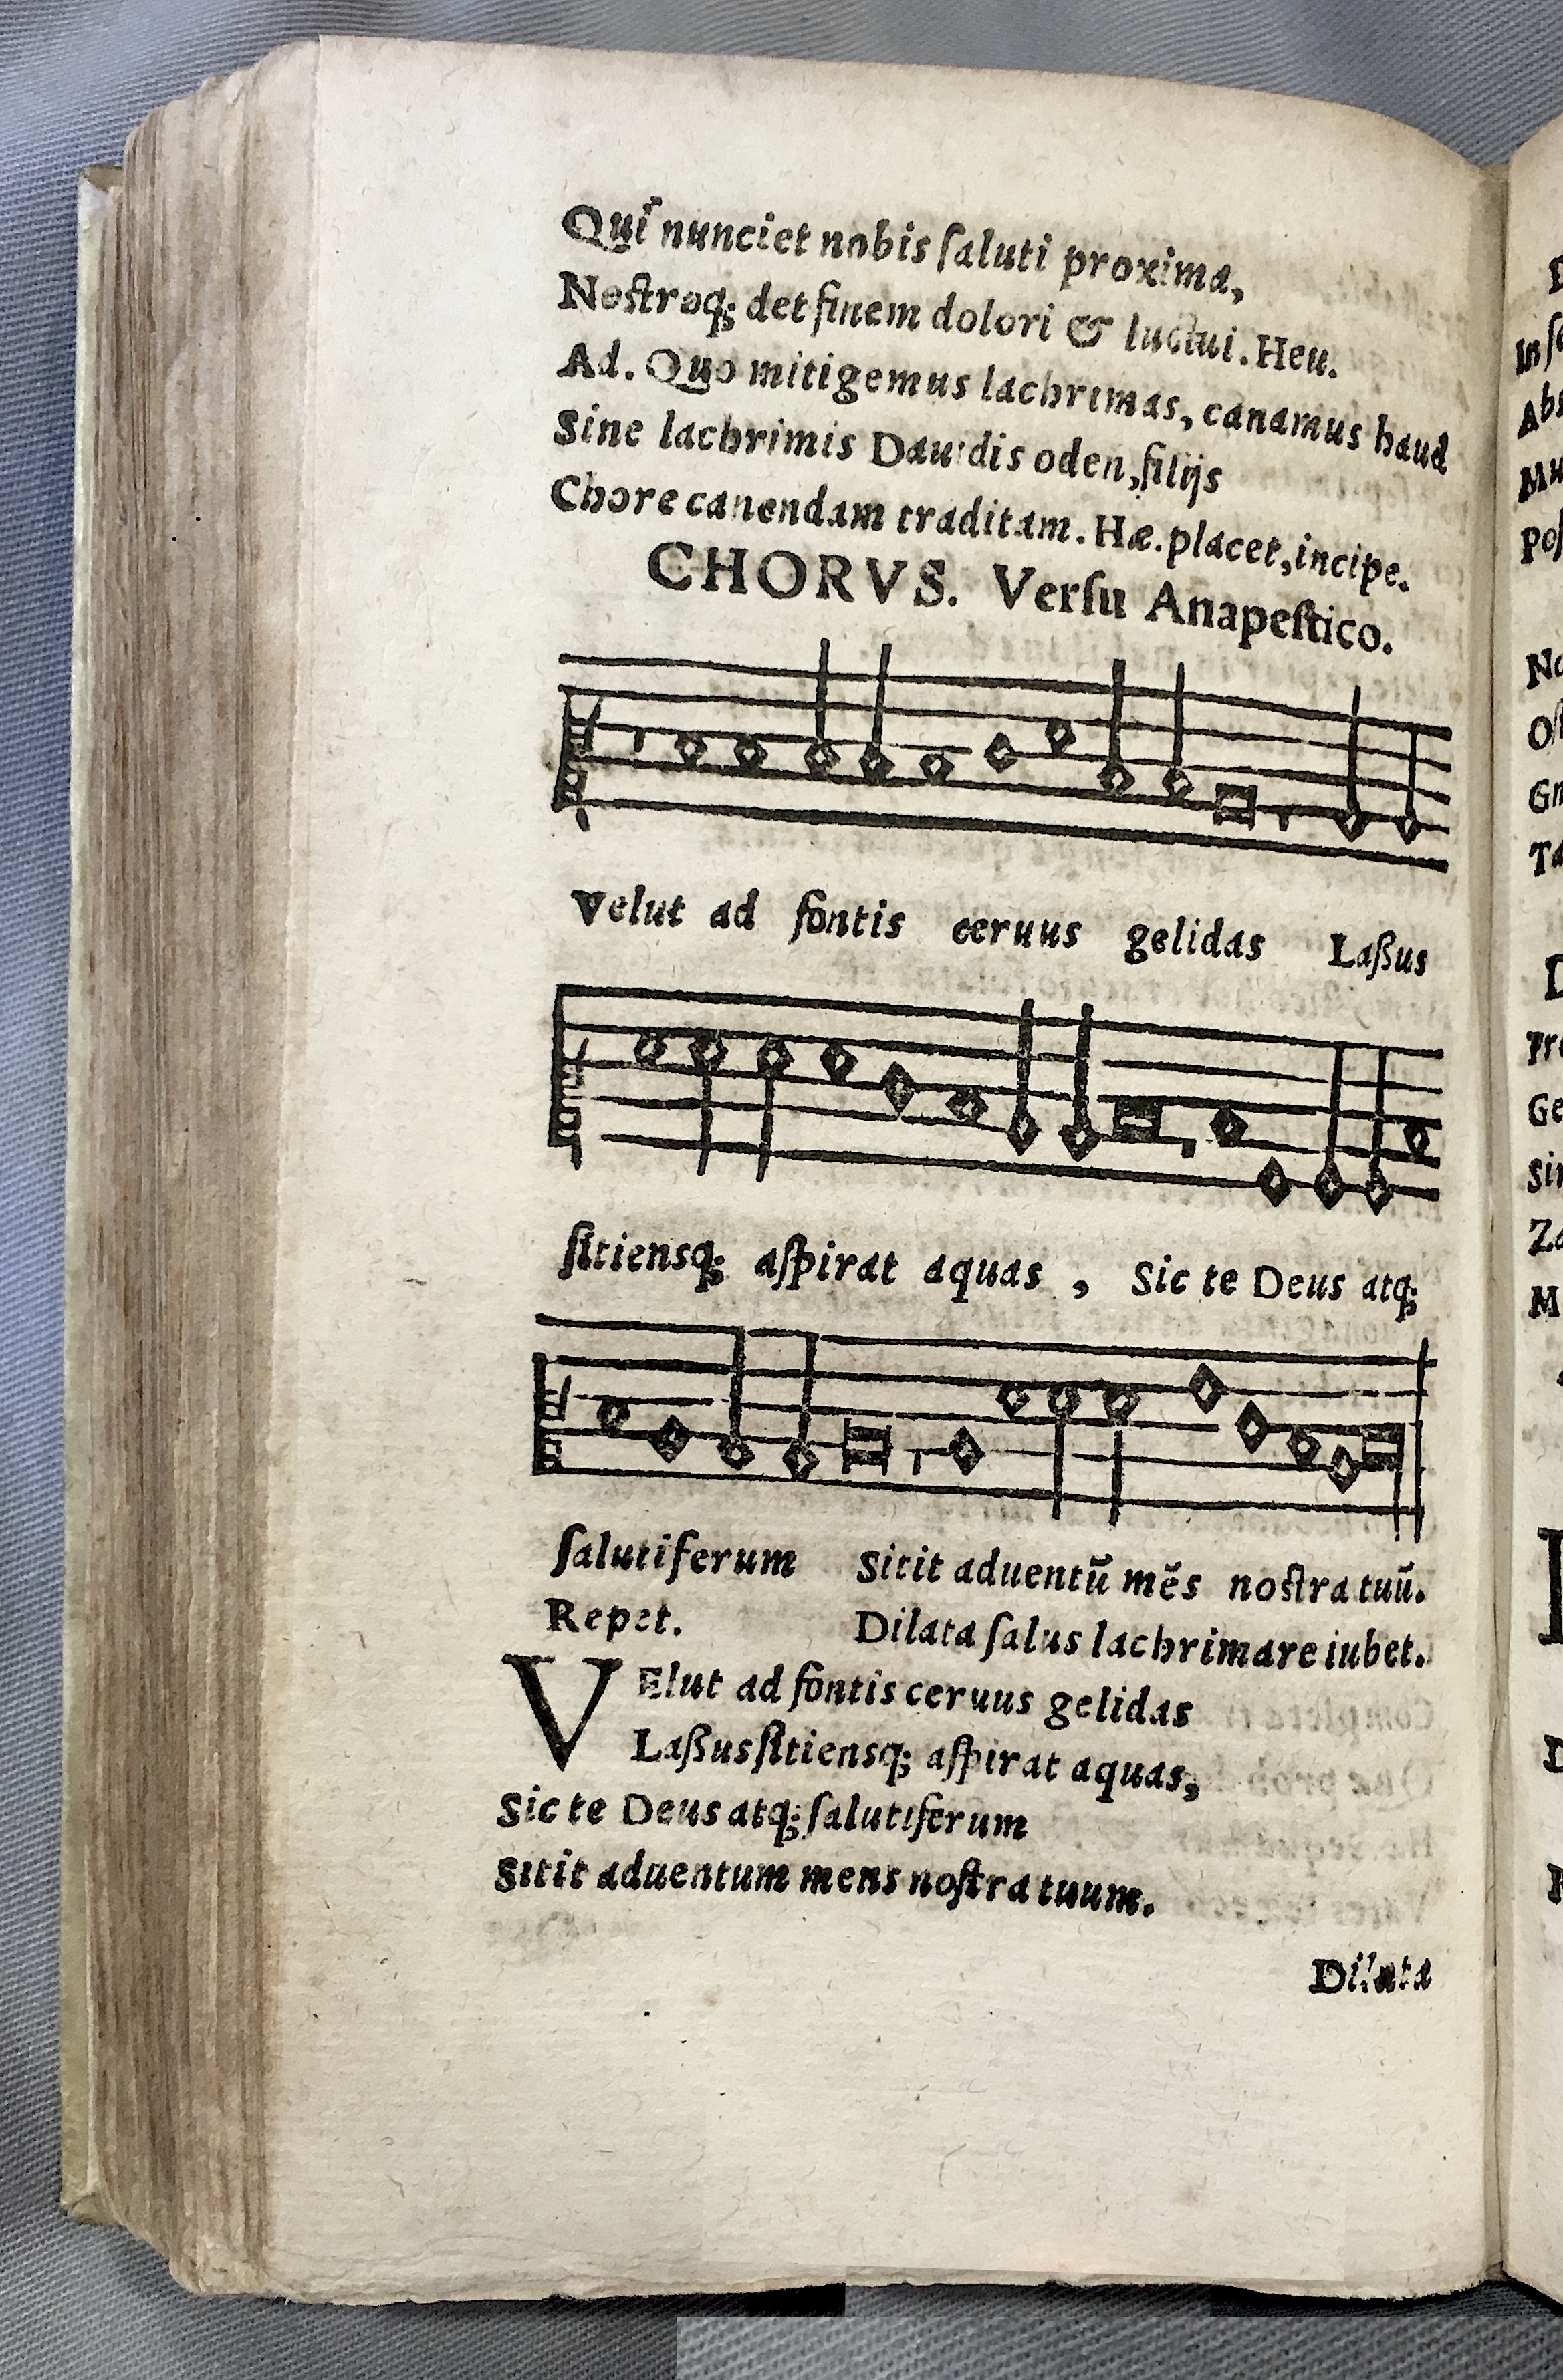 Quī nunciet nobis ſaluti proxima,
Noſtroq; det finem dolori & luctui. Heu.
Ad. Quo mitigemus lachrimas, canamus haud
Sine lachrimis Dauidis oden, filijs
Chore canendam traditam. Hæ. placet, incipe.
CHORVS. Verſu Anapeſtico.
Velut ad fontis ceruus gelidas Laßus
ſitiensq; aſpirat aquas , Sic te Deus atq;
ſalutiferum Sitit aduentū mēs noſtra tuū.
Repet. Dilata ſalus lachrimare iubet.
VElut ad fontis ceruus gelidas
Laßus ſitiensq; aſpirat aquas,
Sic te Deus atq; ſalutiferum
Sitit aduentum mens noſtra tuum.
Dilata